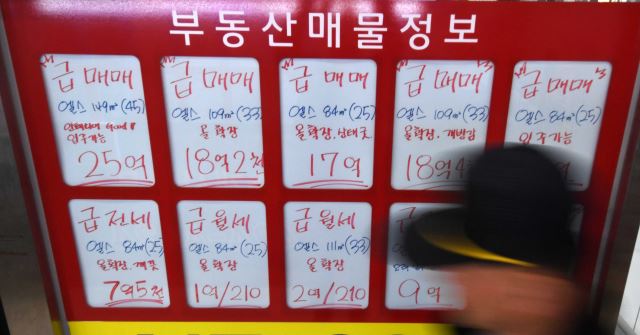 부동산매물정보
급 매매
엘스 149㎡(45)
입주가능
25억
급 매매
엘스 109㎡(33)
올확장
18억2천
급 매매
엘스 84㎡(25)
올확장.상태굿
17억
급 매매
엘스 109㎡(33)
올확장.개방감
18억
급 매매
엘스 84㎡(25)
입주가능
급 전세
엘스 84㎡(25)
올확장.개굿
7억5천
급 월세
엘스 84㎡(25)
올확장
1억/210
급 월세
엘스 111㎡(33)
올확장
2억/210
9억